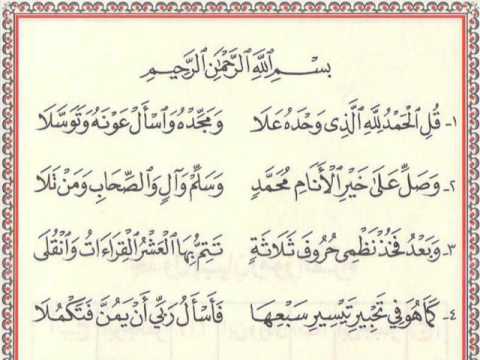 بِسْمِ ٱللَّهِ ٱلرَّحْمَٰنِ ٱلرَّحِيمِ
١- قُلِ الْحَمْدُ لِلَّهِ الَّذِي وَحْدَهُ عَلَا وَمَجِّدْهُ وَاسْأَلْ عَوْنَهُ وَتَوَسَّلَا
٢- وَصَلِّ عَلَىٰ خَيْرِ الْأَنَامِ مُحَمَّدٍ وَسَلِّمْ وَآلٍ وَالصِّحَابِ وَمَنْ تَلَا
٣- وَبَعْدُ فَخُذْ نَظْمِي حُرُوفَ ثَلَاثَةٍ تَتِمُّ بِهَا الْعَشْرُ الْقِرَاءَاتُ وَانْقُلَا
٤- كَمَا هُوَ فِي تَحْبِيرِ تَيْسِيرِ سَبْعِهَا فَأَسْأَلُ رَبِّي أَنْ يَمُنَّ فَتَكْمُلَا